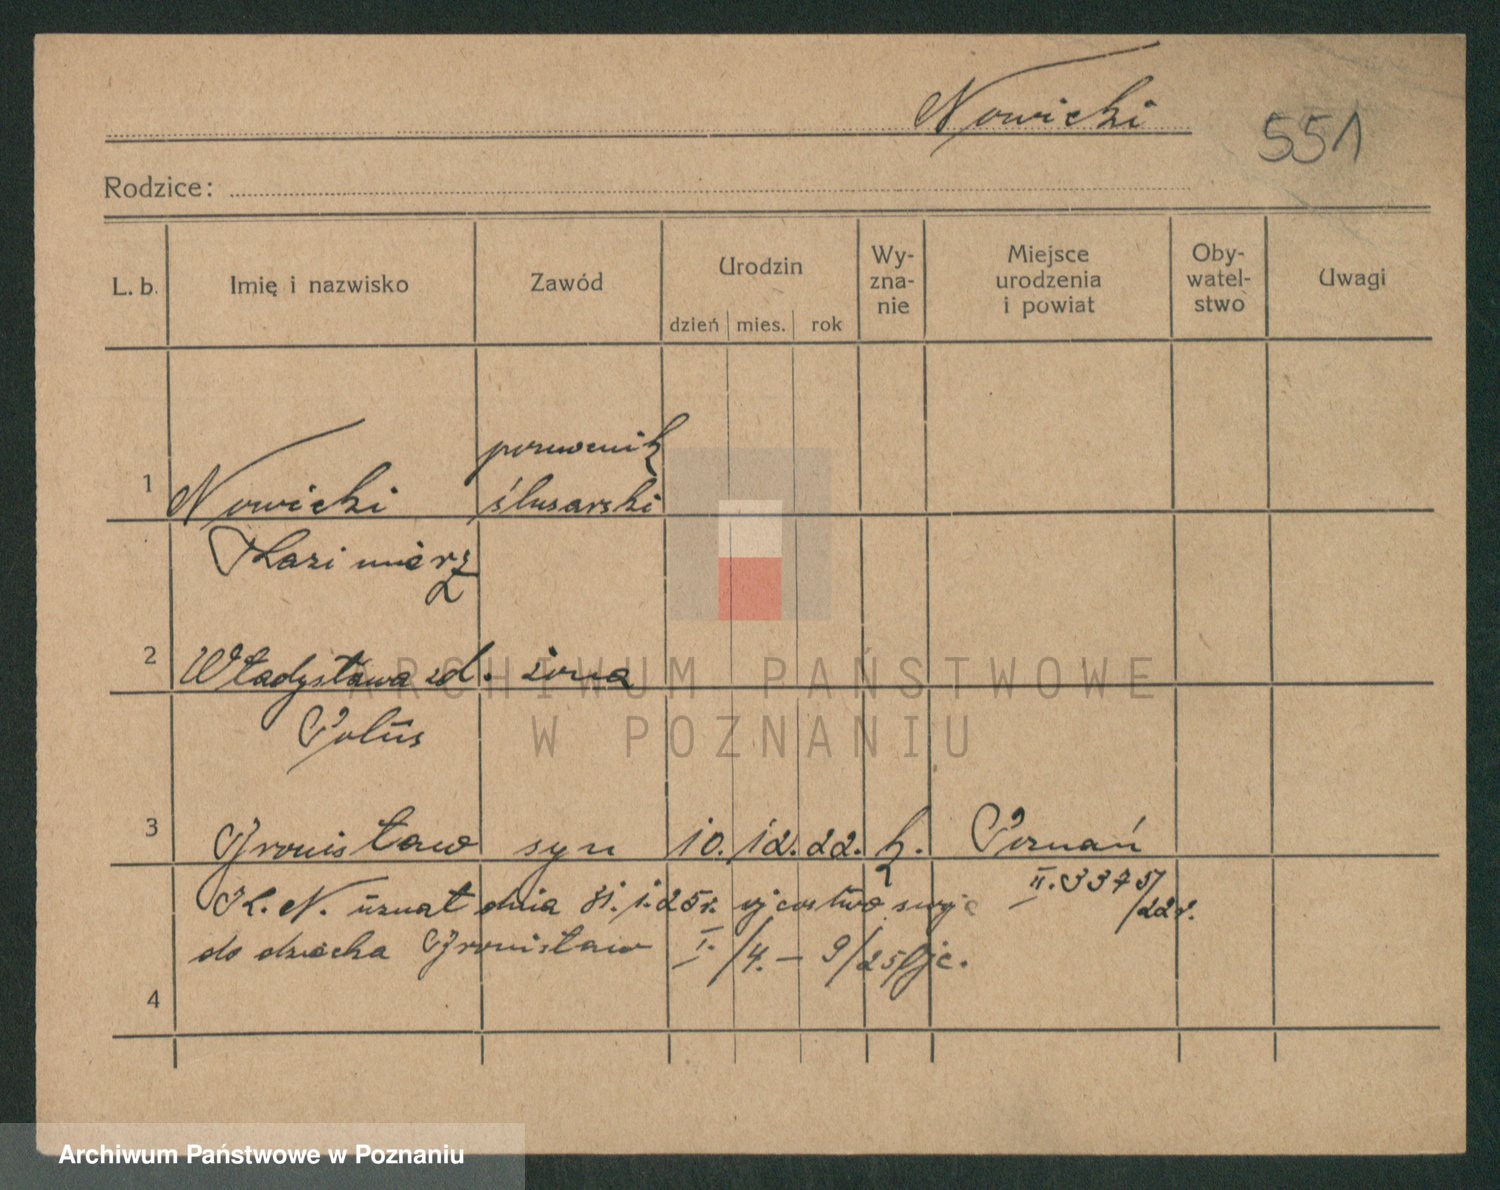 Nowicki
551
Rodzice:
L. b. Imię i nazwisko Zawód Urodzin Wy-zna-nie Miejsce urodzenia i powiat Oby-watel-stwo Uwagi
dzień mies. rok
pomocnik
1 Nowicki ślusarski
Kazimierz
2 Władysława zd. żona
Polus
3 Bronisław syn 10. 12. 22. k. Poznań
II. 3375/22r.
K. N. uznał dnia 31. 1. 25r. ojcostwo swoje
do dziecka Bronisław I. /4. – 9/25
4
ARCHIWUM PAŃSTWOWE
W POZNANIU
Archiwum Państwowe w Poznaniu